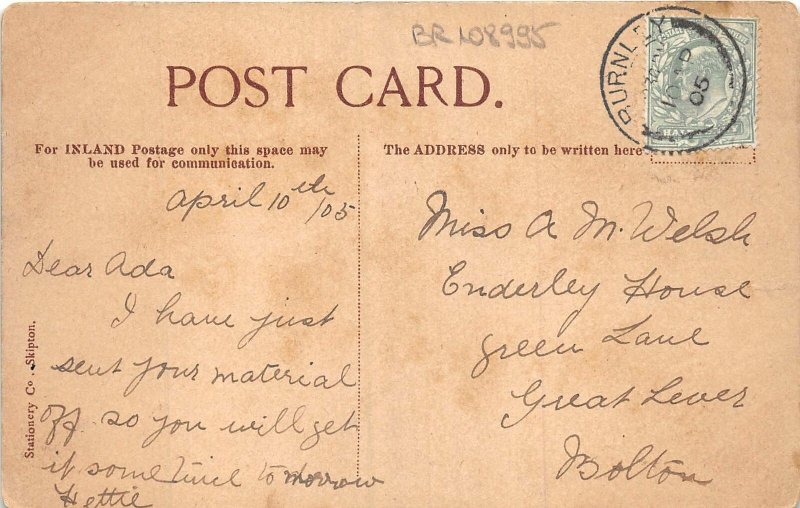 BR108995
POST CARD.
BURNLEY
10 AP
05
For INLAND Postage only this space may
be used for communication.
The ADDRESS only to be written here
April 10th/05
Dear Ada
I have just
sent your material
off so you will get
it some time tomorrow
Hettie
Miss A M. Welsh
Enderley House
Green Lane
Great Lever
Bolton
Stationery Co., Skipton.